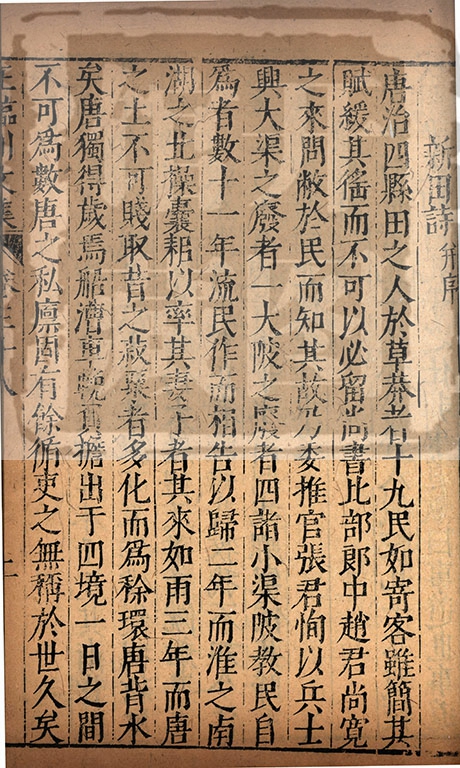 新田詩并序
唐治四縣田之人於草莽者十九民如寄客雖簡其
賦緩其徭而不可以必留尚書比部郎中趙君尚寬
之來問敝於民而知其故乃委推官張君恂以兵士
興大渠之廢者一大陂之廢者四諸小渠陂教民自
為者數十一年流民作而相告以歸二年而淮之南
湖之北操囊耜以率其妻子者其來如雨三年而唐
之土不可賤取昔之菽粟者多化而為稌環唐皆水
矣唐獨得歲焉船漕車輓負擔出于四境一日之間
不可為數唐之私廩固有餘循吏之無稱於世久矣
王臨川文集 卷三十八 上